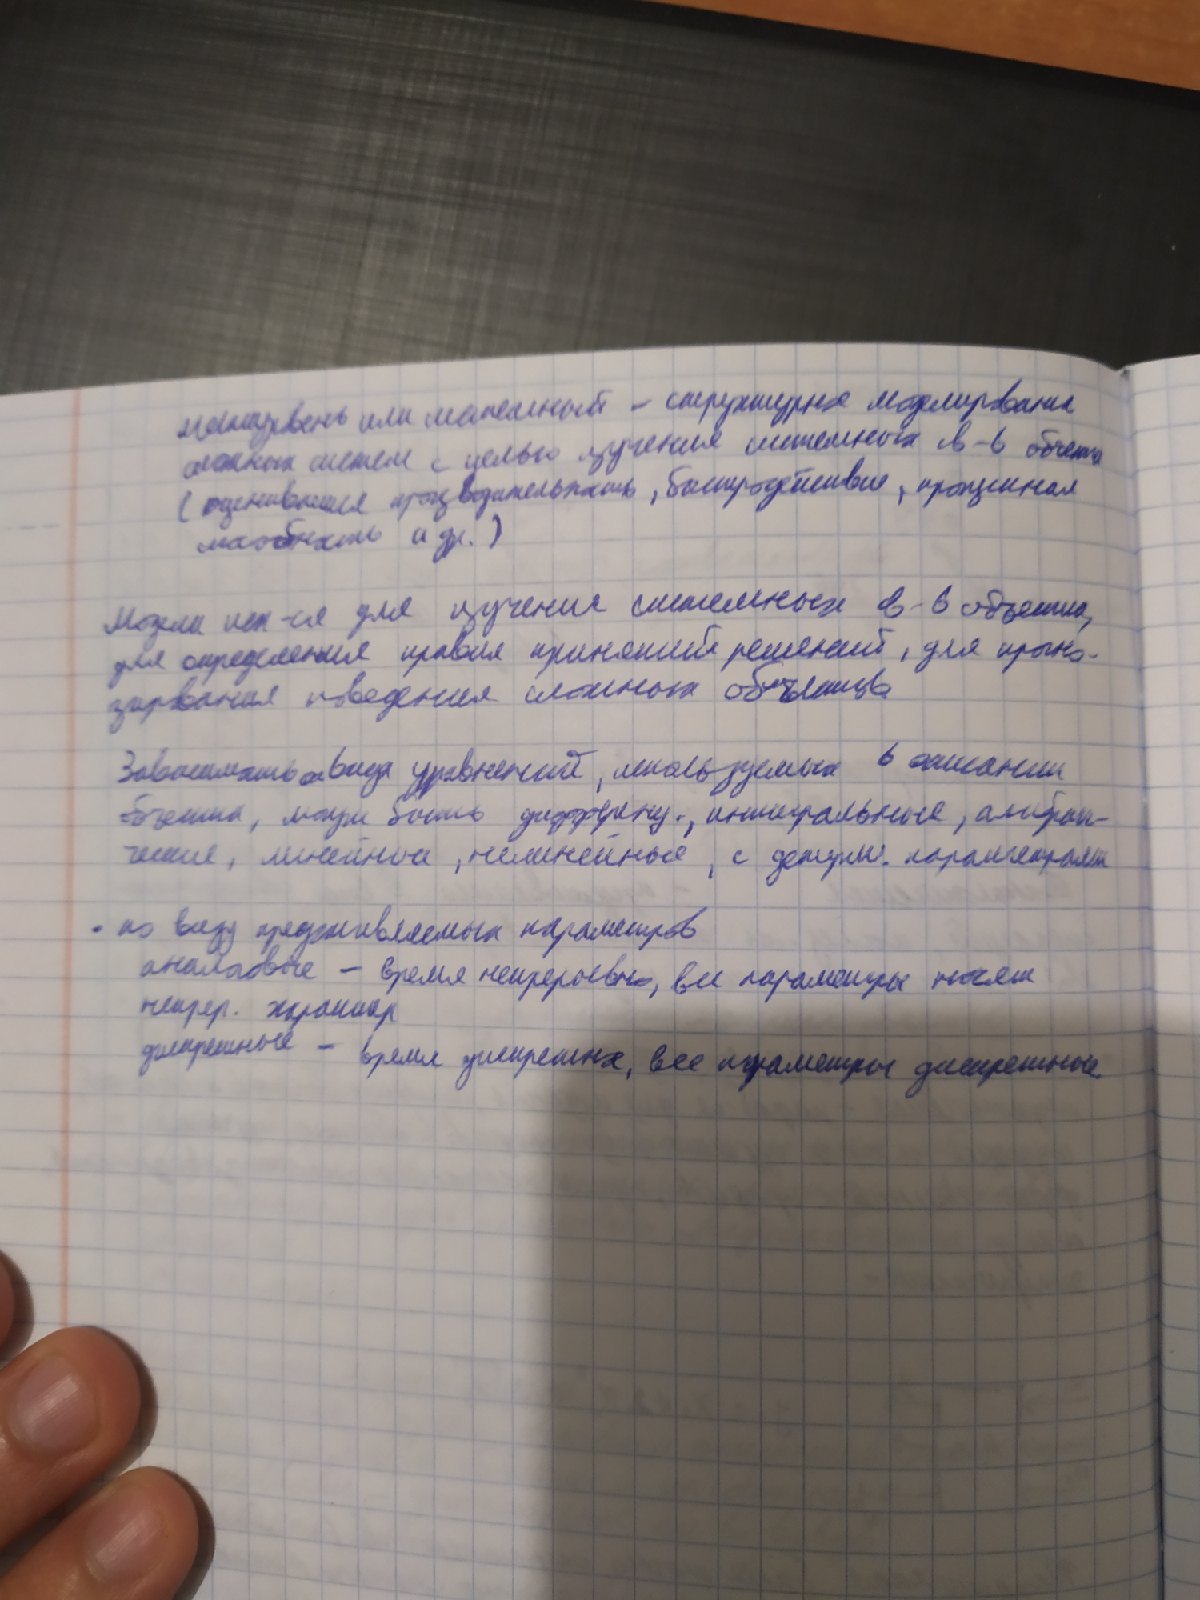 метауровень или системный – структурное моделирование
сложных систем с целью изучения системных в-в объекта
(оценивается производительность, быстродействие, пропускная
способность и др.)
Модели исп-ся для изучения системных в-в объекта,
для определения правил принятий решений, для прогно-
зирования поведения сложных объектов
Зависимость от вида уравнений, используемых в описании
объекта, могут быть дифферену., интегральные, алгебраи-
ческие, линейные, нелинейные, с параметрами
• по виду представляемых параметров
аналоговые – время непрерывно, все параметры носят
непрер. характер
дискретные – время дискретно, все параметры дискретные